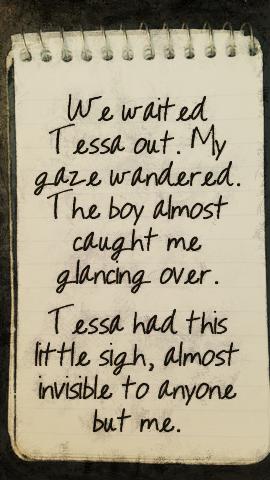 We waited
Tessa out. My
gaze wandered.
The boy almost
caught me
glancing over.
Tessa had this
little sigh, almost
invisible to anyone
but me.